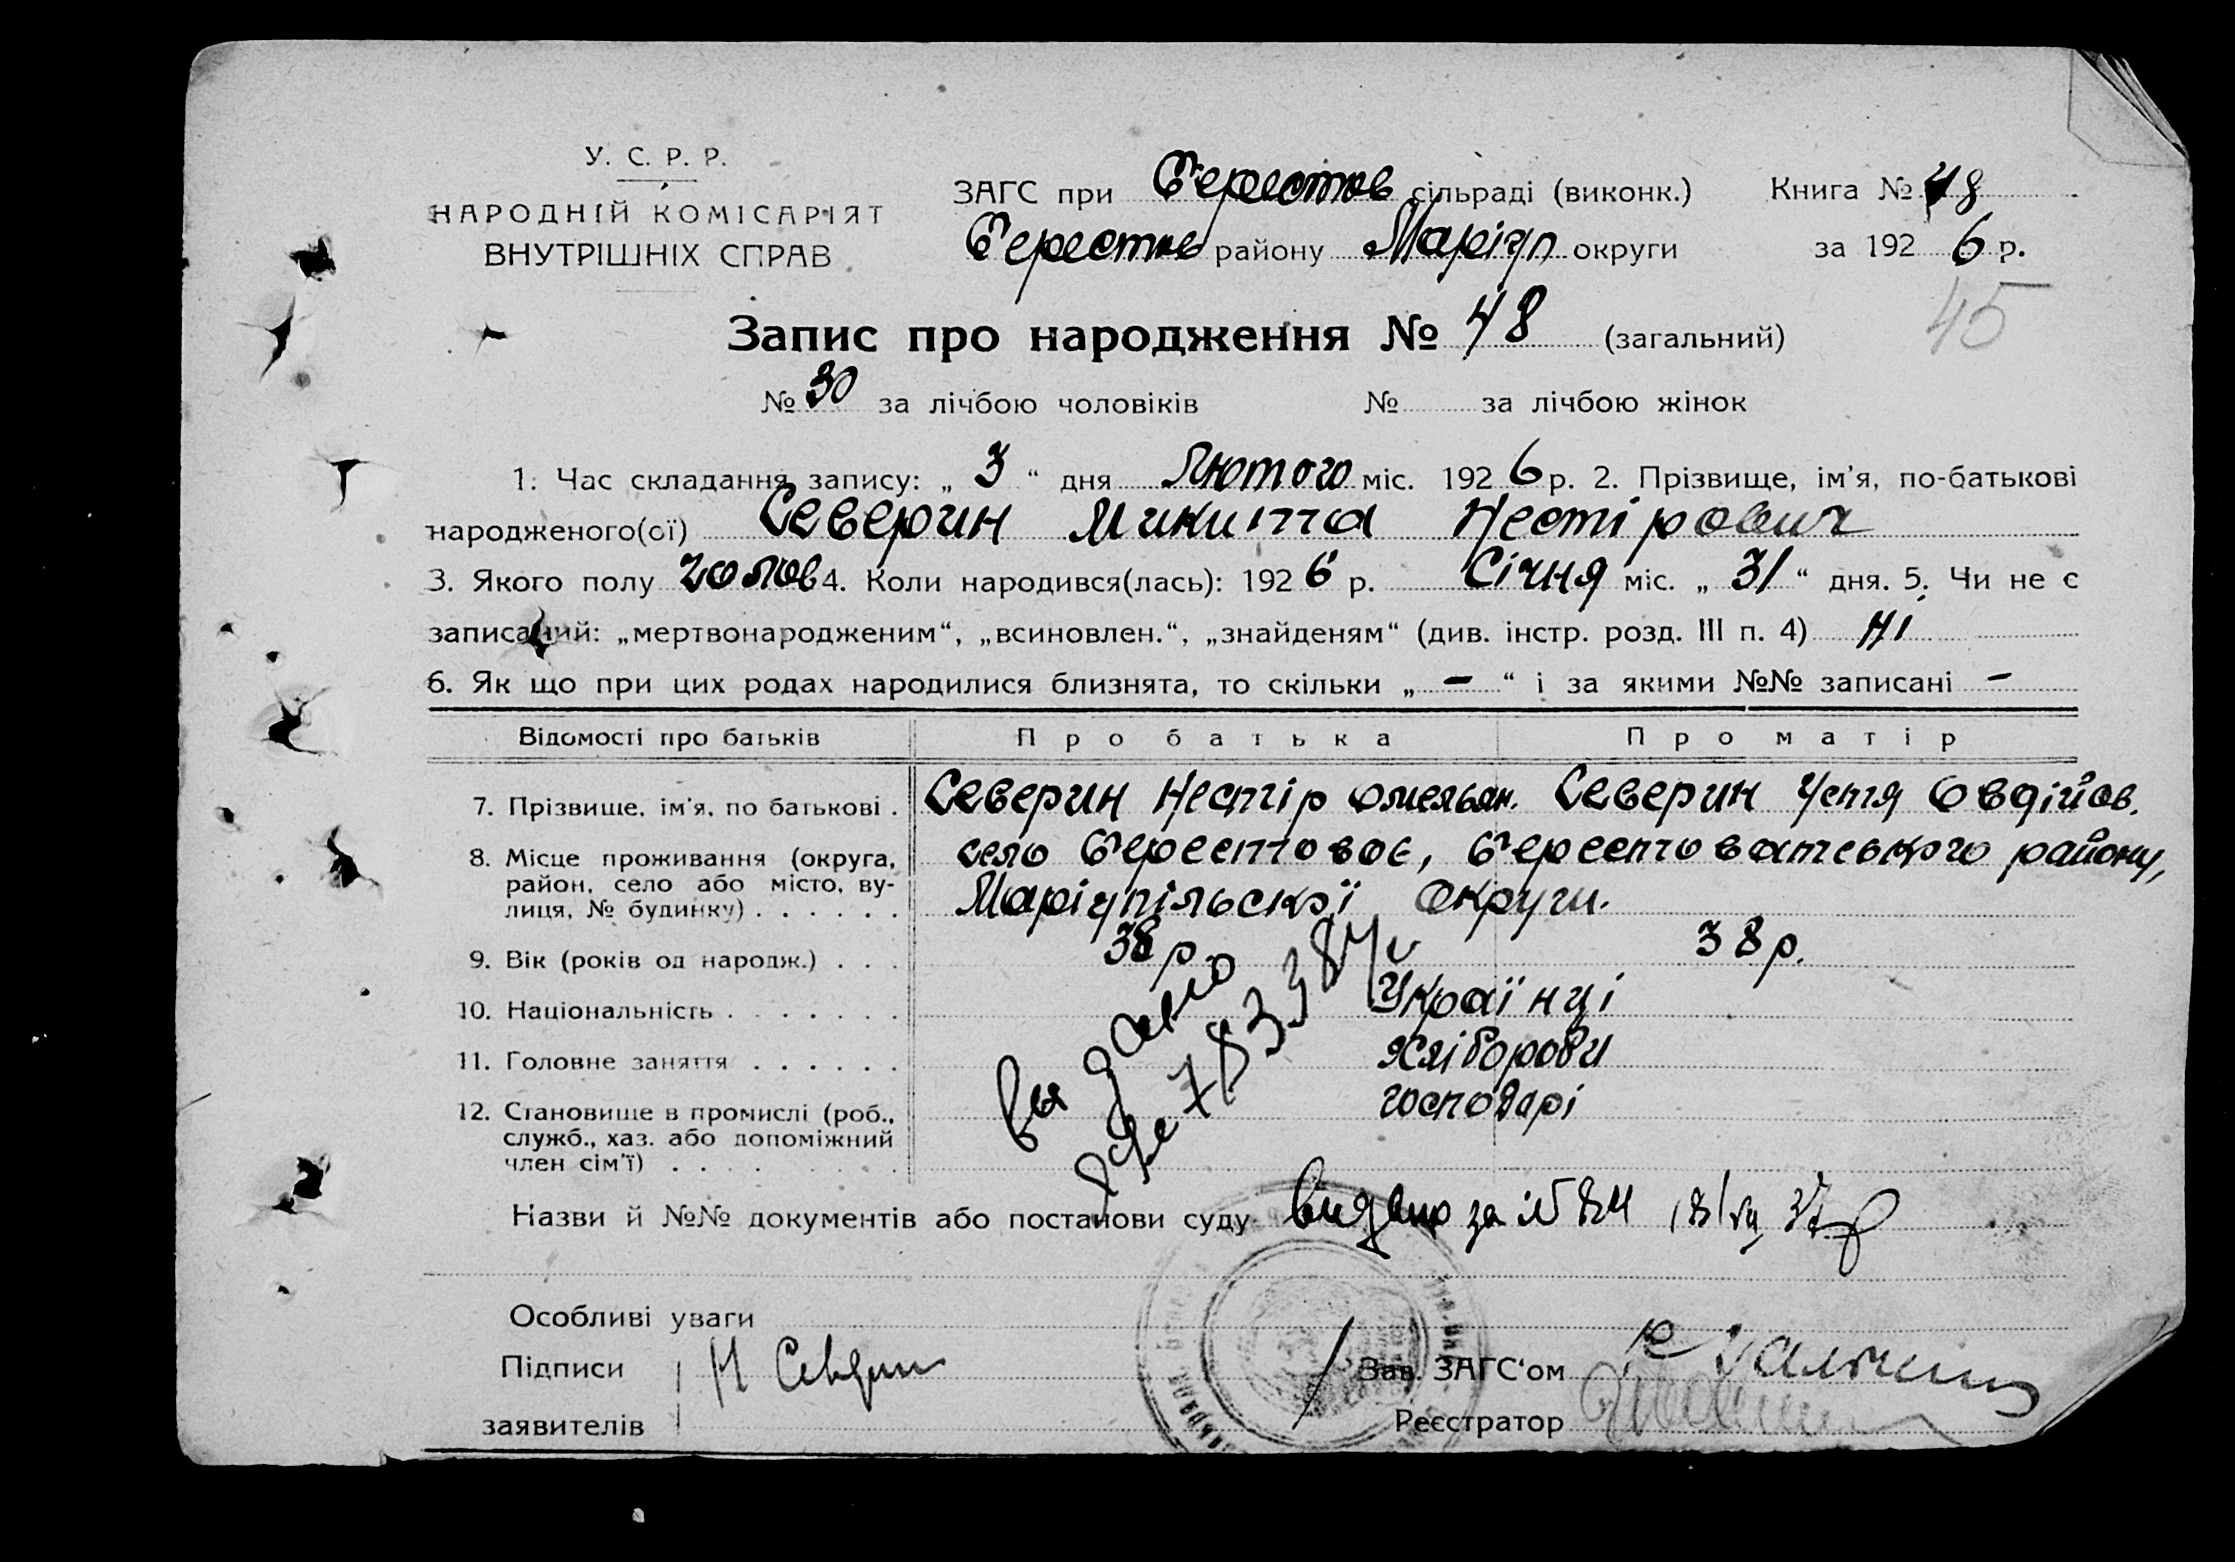 У. С. Р. Р.
НАРОДНІЙ КОМІСАРІЯТ
ВНУТРІШНІХ СПРАВ
ЗАГС при Берестов сільраді (виконк.) Книга № 48
Берестов району Маріуп округи за 1926 р.
45
Запис про народження № 48 (загальний)
№ 30 за лічбою чоловіків № за лічбою жінок
1. Час складання запису: „ 3 “ дня Лютого міс. 1926 р. 2. Прізвище, ім'я, по-батькові
народженого(ої) Северин Микита Нестірович
3. Якого полу чолов 4. Коли народився(лась): 1926 р. Січня міс. „ 31 “ дня. 5. Чи не є
записаний: „мертвонародженим“, „всиновлен.“, „знайденям“ (див. інстр. розд. III п. 4) Ні
6. Як що при цих родах народилися близнята, то скільки „ — “ і за якими №№ записані —
Відомості про батьків Про батька Про матір
7. Прізвище, ім'я, по батькові . Северин Нестір Омельян. Северин Устя Овдійов.
8. Місце проживання (округа, район, село або місто, ву- лиця, № будинку) . . . . . . село Берестовоє, Берестоватського району,
Маріупільскої округи.
9. Вік (років од народж.) . . . 38 р. 38 р.
10. Національність . . . . . . . Українці
11. Головне заняття . . . . . . Хлібороби
12. Становище в промислі (роб., служб., хаз. або допоміжний член сім'ї) . . . . господарі
Назви й №№ документів або постанови суду видано за № 37
Особливі уваги
Підписи Н Северин Зав. ЗАГС'ом
заявителів Реєстратор